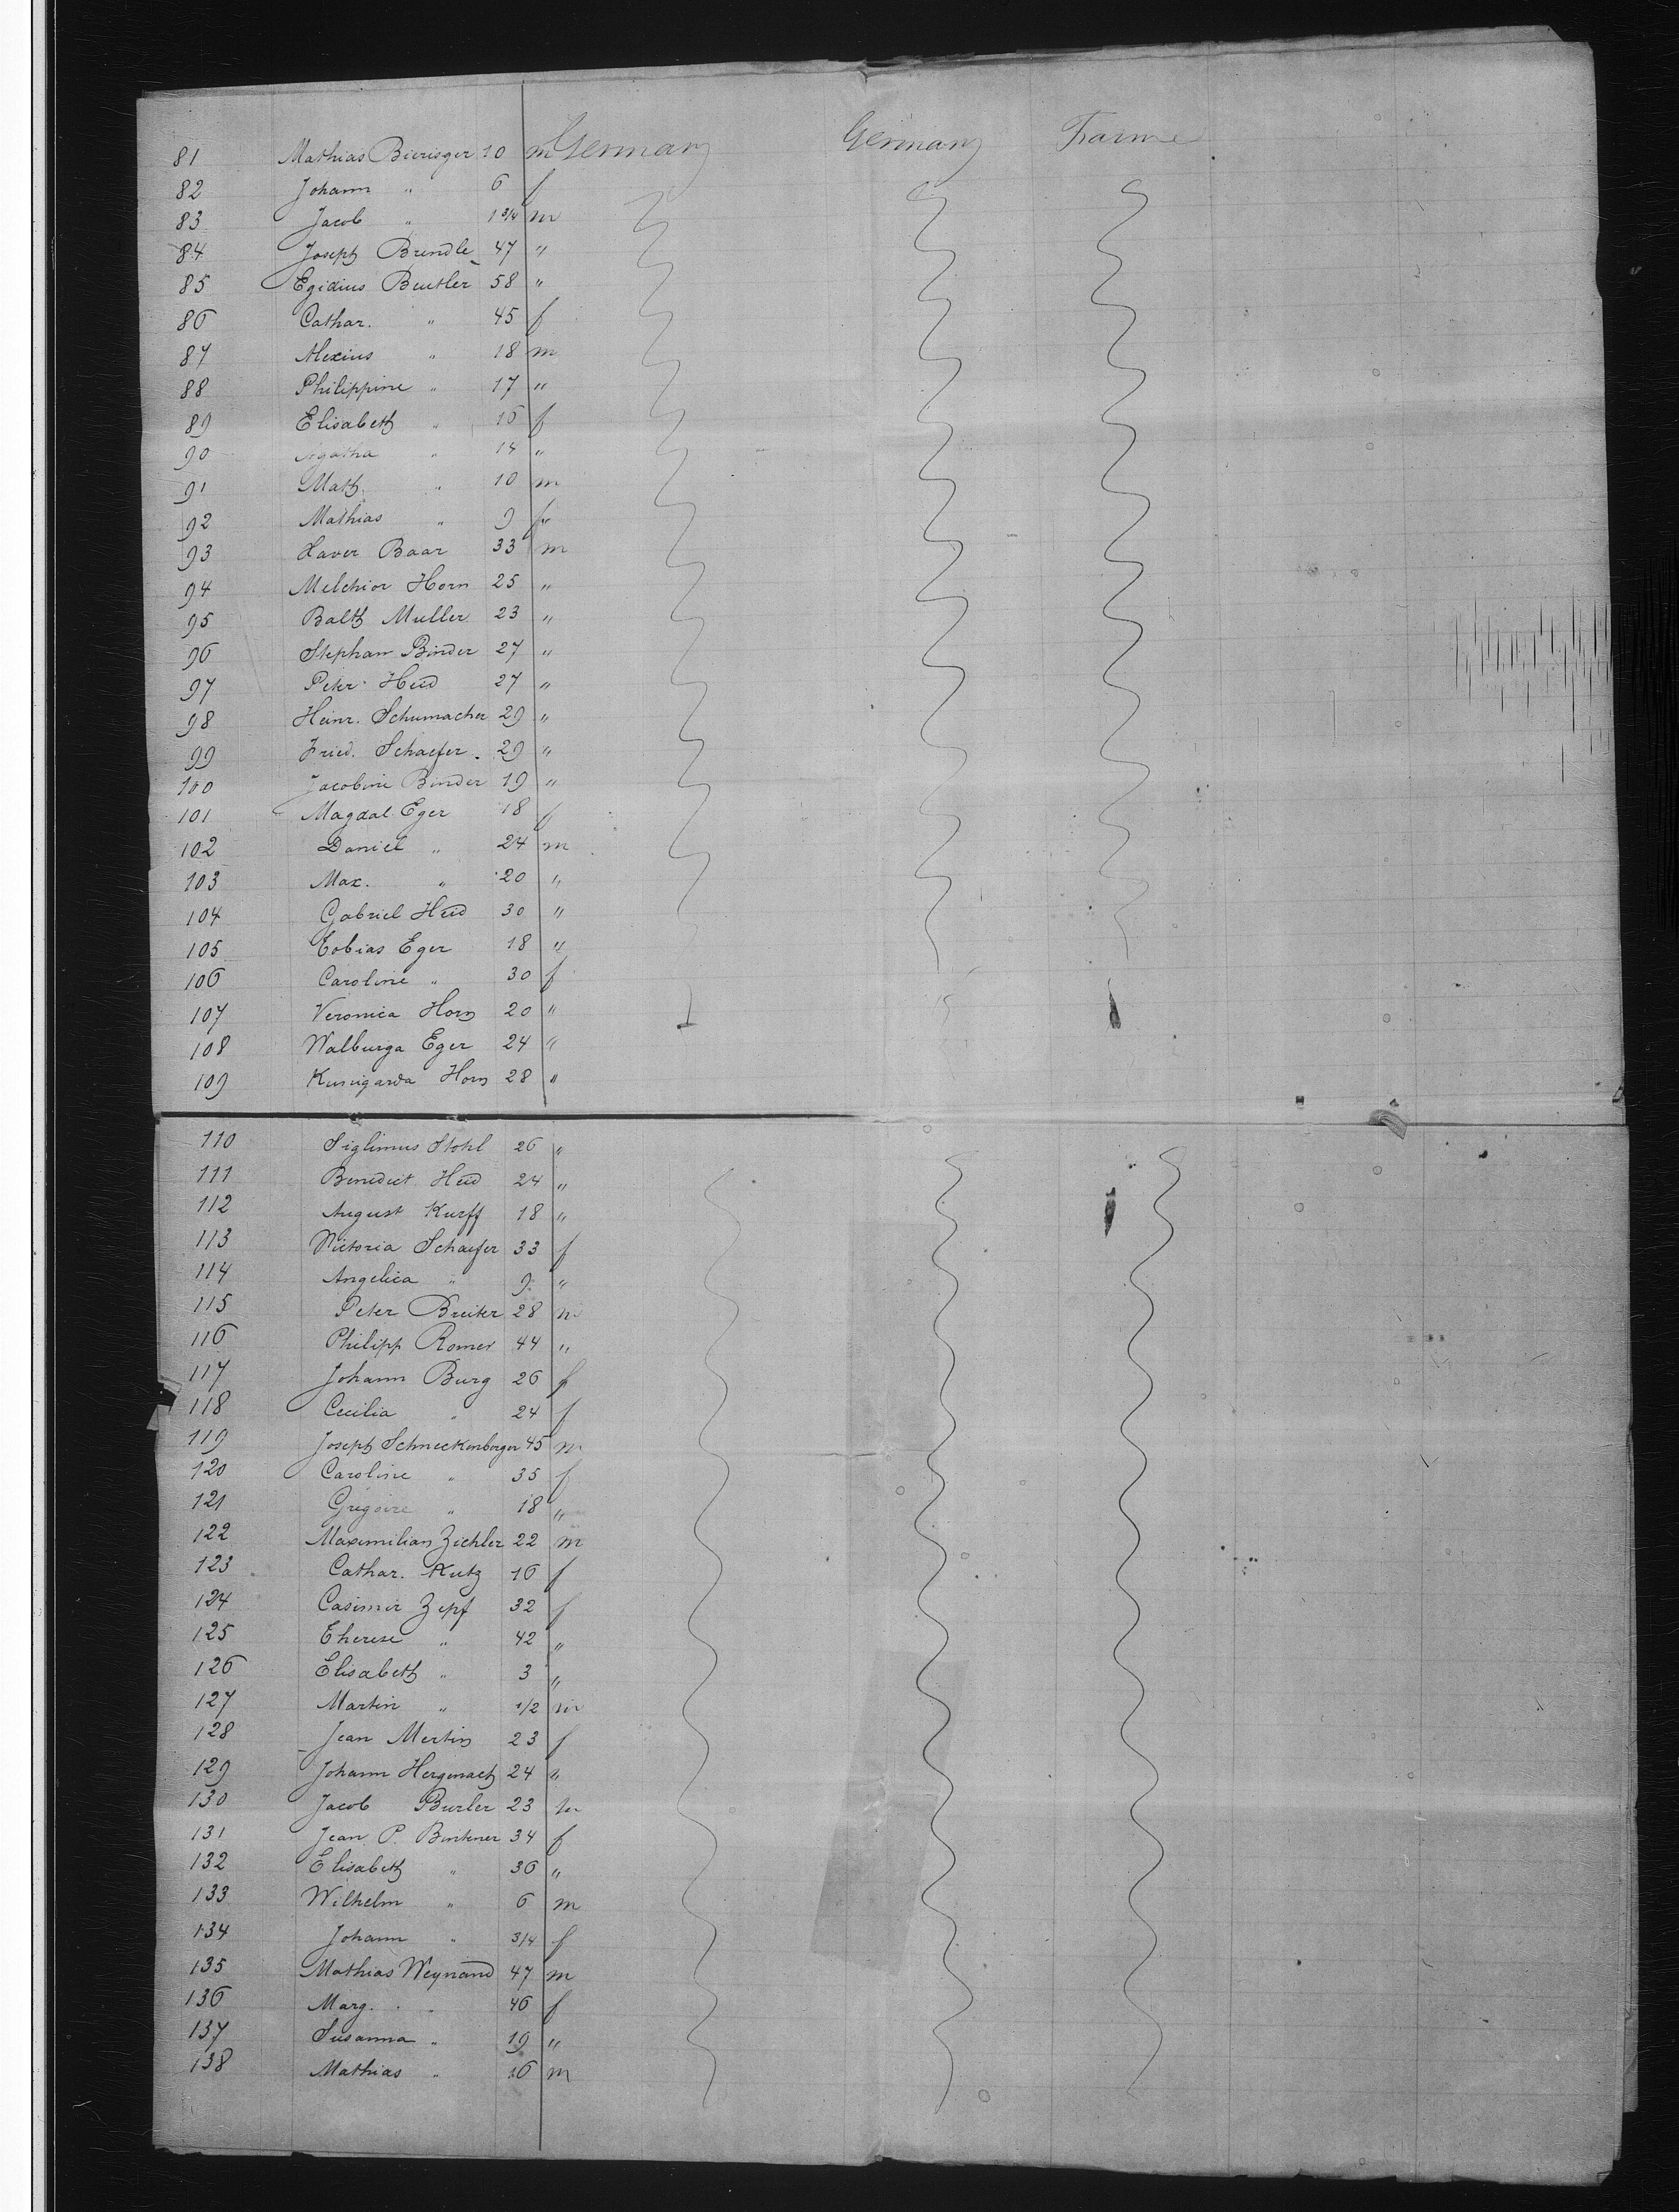 81 Mathias Bierisger 10 m Germany Germany Farmer
82 Johann " 6 f
83 Jacob " 1 3/4 m
84 Joseph Brendle 47 "
85 Egidius Beutler 58 "
86 Cathar. " 45 f
87 Alexius " 18 m
88 Philippine " 17 "
89 Elisabeth " 16 f
90 Agatha " 14 "
91 Math. " 10 m
92 Mathias " 9
93 Xaver Baar 33 m
94 Melchior Horn 25 "
95 Balth Muller 23 "
96 Stephan Binder 27 "
97 Peter Heid 27 "
98 Heinr. Schumacher 29 "
99 Fried. Schaefer 29 "
100 Jacobine Binder 19 "
101 Magdal Eger 18 f
102 Daniel " 24 m
103 Max. " 20 "
104 Gabriel Heid 30 "
105 Tobias Eger 18 "
106 Caroline " 30 f
107 Veronica Horn 20 "
108 Walburga Eger 24 "
109 Kunigarda Horn 28 "
110 Siglimus Stohl 26 "
111 Benedict Heid 24 "
112 August Kurff 18 "
113 Victoria Schaefer 33 f
114 Angelica " 9 "
115 Peter Breiter 28 m
116 Philipp Romer 44 "
117 Johann Burg 26 f
118 Cecilia " 24 f
119 Joseph Schneckenberger 45 m
120 Caroline " 35 f
121 Gregoire " 18 "
122 Maximilian Zichler 22 m
123 Cathar. Kutz 16 f
124 Casimir Zepf 32 f
125 Therese " 42 "
126 Elisabeth " 3 "
127 Martin " 1/2 m
128 Jean Mertin 23 f
129 Johann Hergenach 24 "
130 Jacob Burler 23 m
131 Jean P. Bintener 34 f
132 Elisabeth " 36 "
133 Wilhelm " 6 m
134 Johann " 3/4 f
135 Mathias Weynand 47 m
136 Marg. " 46 f
137 Susanna " 19 "
138 Mathias " 16 m